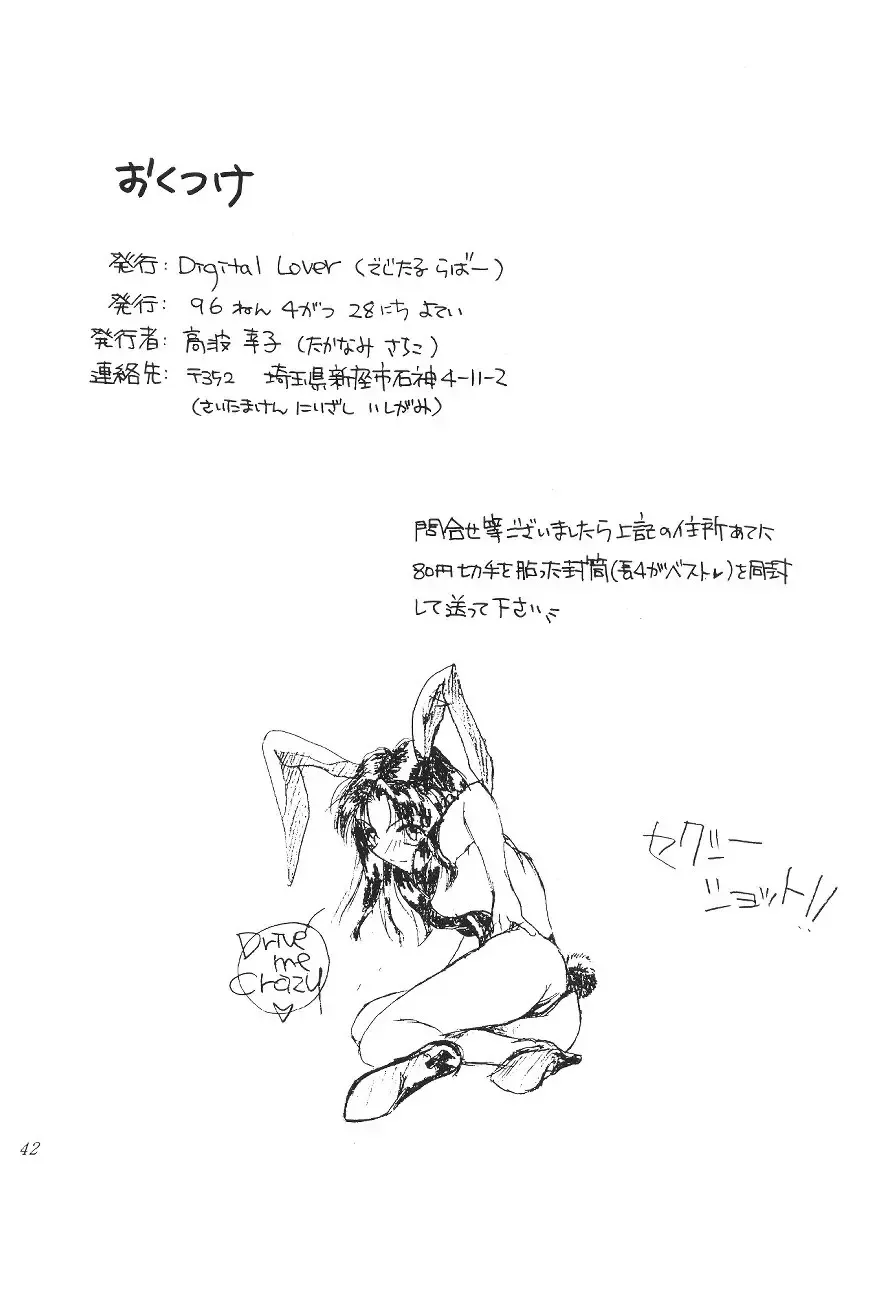 おくつけ
発行: Digital Lover (でじたる らばー)
発行: 96 ねん 4がつ 28にち よてい
発行者: 高波 幸子 (たかなみ さちこ)
連絡先: 〒352 埼玉県新座市石神4-11-2
(さいたまけん にいざし いしがみ)
問合せ等ございましたら上記の住所あてに
80円切手を貼った封筒(長4がベスト♥)を同封
して送って下さい
セクシー
ショット!!
Drive
me
Crazy
♡
42